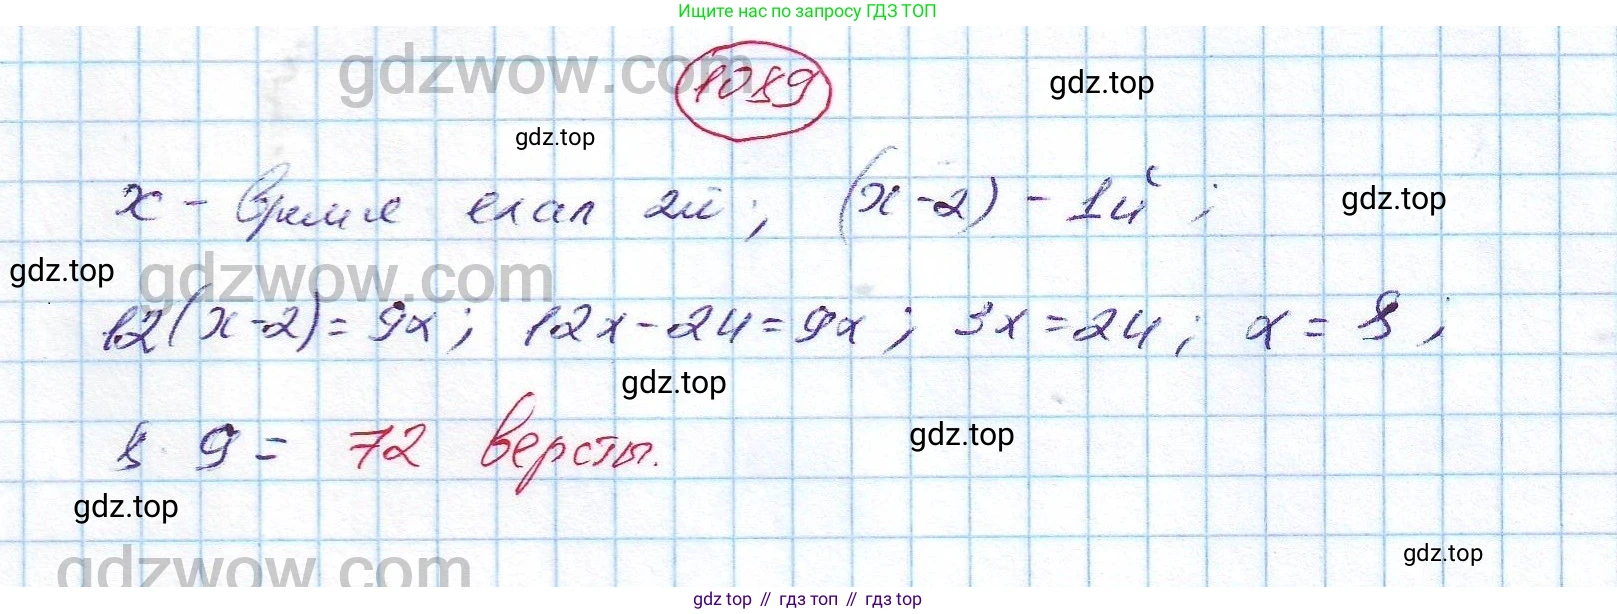 Ищите нас по запросу ГДЗ ТОП
gdzwow.com
1089
gdz.top
gdz.top
x - время ехал 2й; (x-2) - 1й;
gdz.top
gdz.top
gdzwow.com
12(x-2)=9x; 12x-24=9x; 3x=24; x=8;
gdz.top
8 9= 72 версты.
gdz.top
gdz.top
gdz.top
gdzwow.com
gdz.top // гдз топ // гдз.top